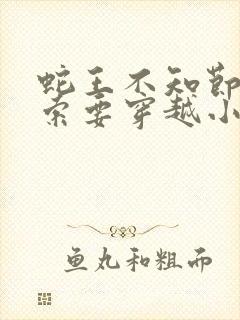 蛇王不知节
索要穿越小
鱼丸和粗面